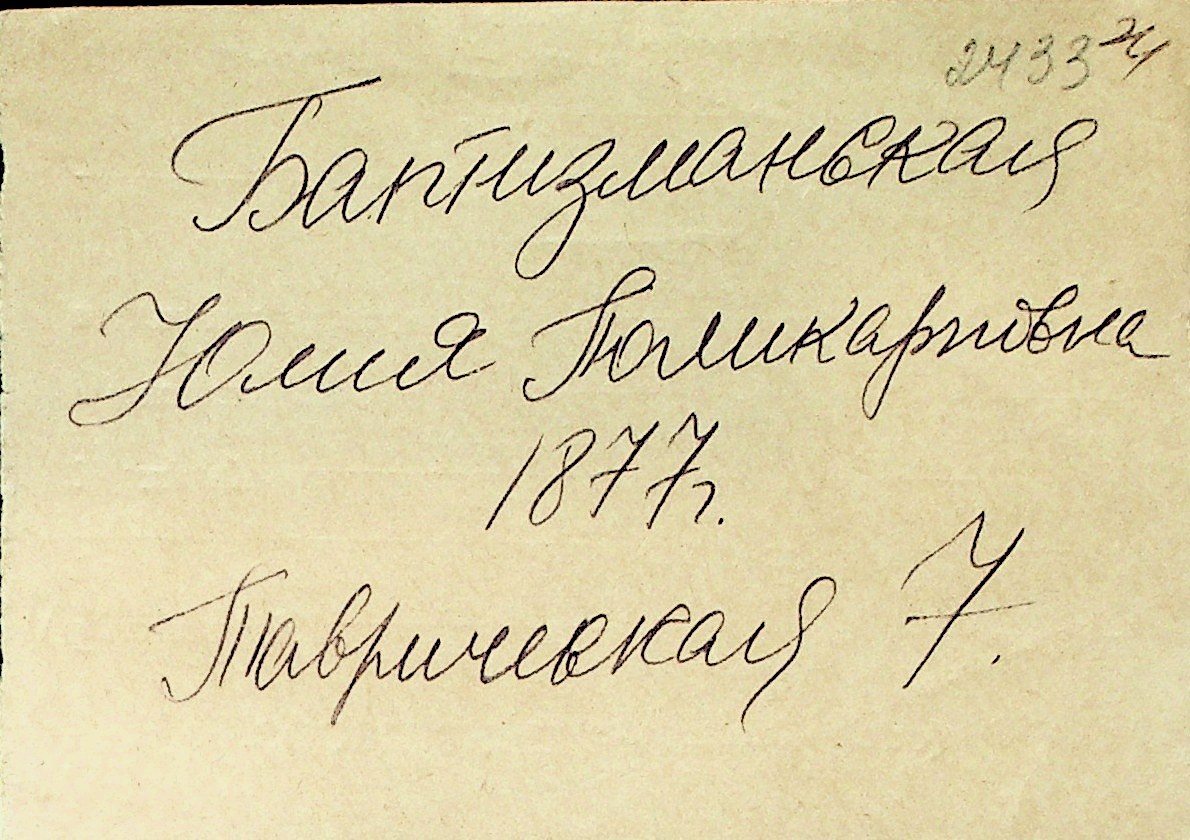 2433
Баптизманская
Юлия Поликарповна
1877г.
Таврическая 7.